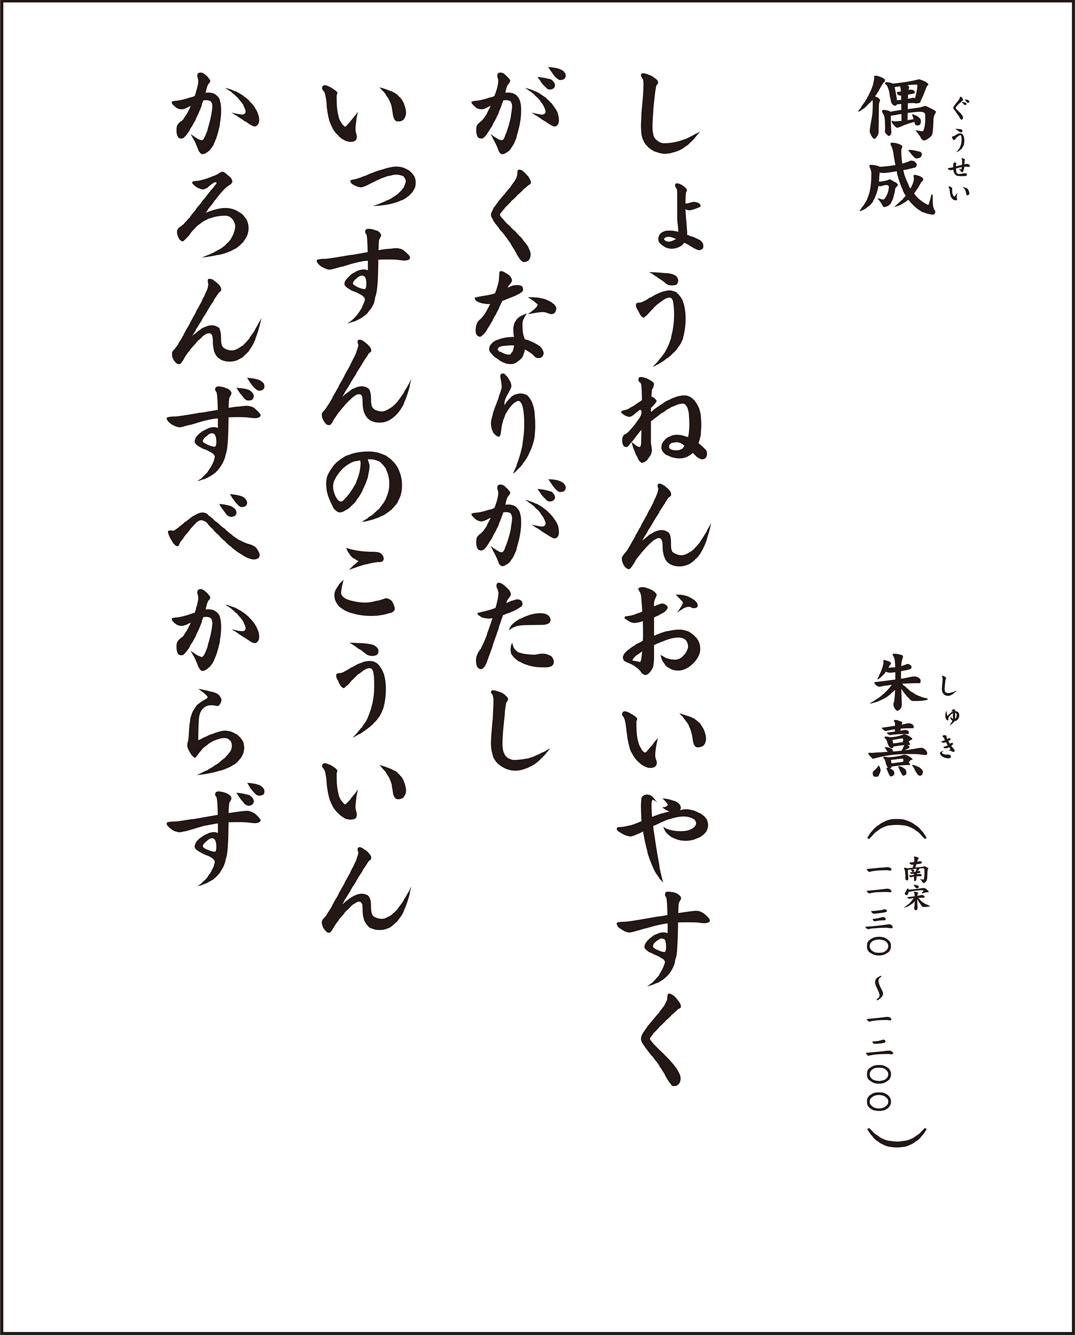 偶成
ぐうせい
朱熹
しゅき
（南宋
一一三〇〜一二〇〇）
しょうねんおいやすく
がくなりがたし
いっすんのこういん
かろんずべからず